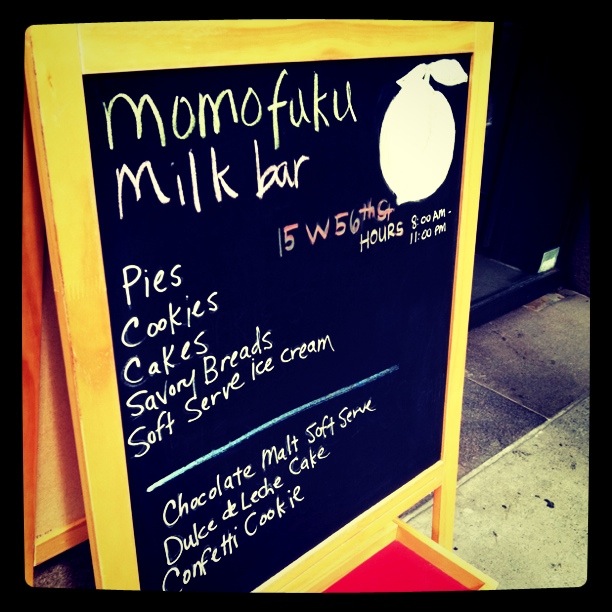 momofuku
milk bar
15 W 56th St
HOURS 8:00 AM -
11:00 PM
Pies
Cookies
Cakes
Savory Breads
Soft Serve ice cream
Chocolate Malt Soft Serve
Dulce de Leche Cake
Confetti Cookie